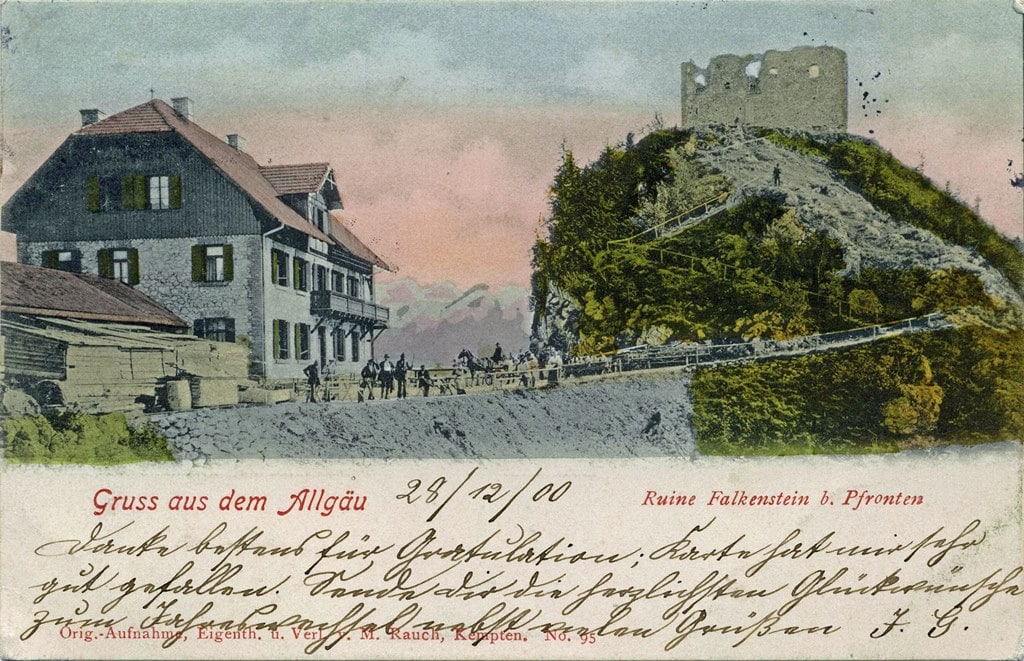 Gruss aus dem Allgäu 28/12/00 Ruine Falkenstein b. Pfronten
Danke bestens für Gratulation; Karte hat mir sehr
gut gefallen. Sende dir die herzlichsten Glückwünsche
zum Jahreswechsel nebst vielen Grüßen J. G.
Orig.-Aufnahme, Eigenth. u. Verl. v. M. Rauch, Kempten. No. 95